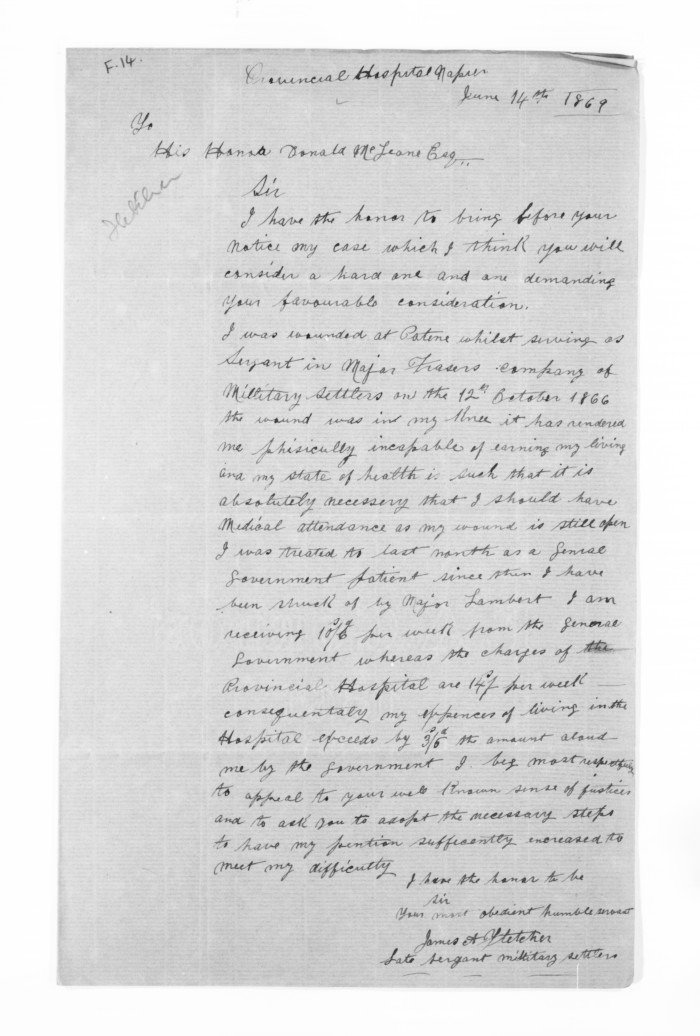 F. 14.
Provincial Hospital Napier
June 14th 1869
To
His Honor Donald McLeane Esq
Fletcher
Sir
I have the honor to bring before your
notice my case which I think you will
consider a hard one and one demanding
your favourable consideration.
I was wounded at Patene whilst serving as
Sergant in Major Frasers company of
Millitary Settlers on the 12th October 1866
the wound was in my knee it has rendered
me phisiculy incapable of earning my living
and my state of health is such that it is
absolutely necessery that I should have
Medical attendance as my wound is still open
I was treated to last month as a Genral
Government patient since then I have
been struck of by Major Lambert I am
receiving 10s/6d per week from the General
Government whereas the charges of the
Provincial Hospital are 14s/ per week
consequentaly my expences of living in the
Hospital exceeds by 3s/6d the amount aloud
me by the Government I beg most respectfuly
to appeal to your well known sense of justices
and to ask you to adopt the necessary steps
to have my pention sufficently encreased to
meet my difficulty
I have the honor to be
sir
Your most obedient humble servant
James A Fletcher
Late sergant millitary settlers